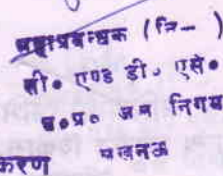 महाप्रबन्धक (नि- )
सी० एण्ड डी. एसे०
उ०प्र० जल निगम
करण लखनऊ